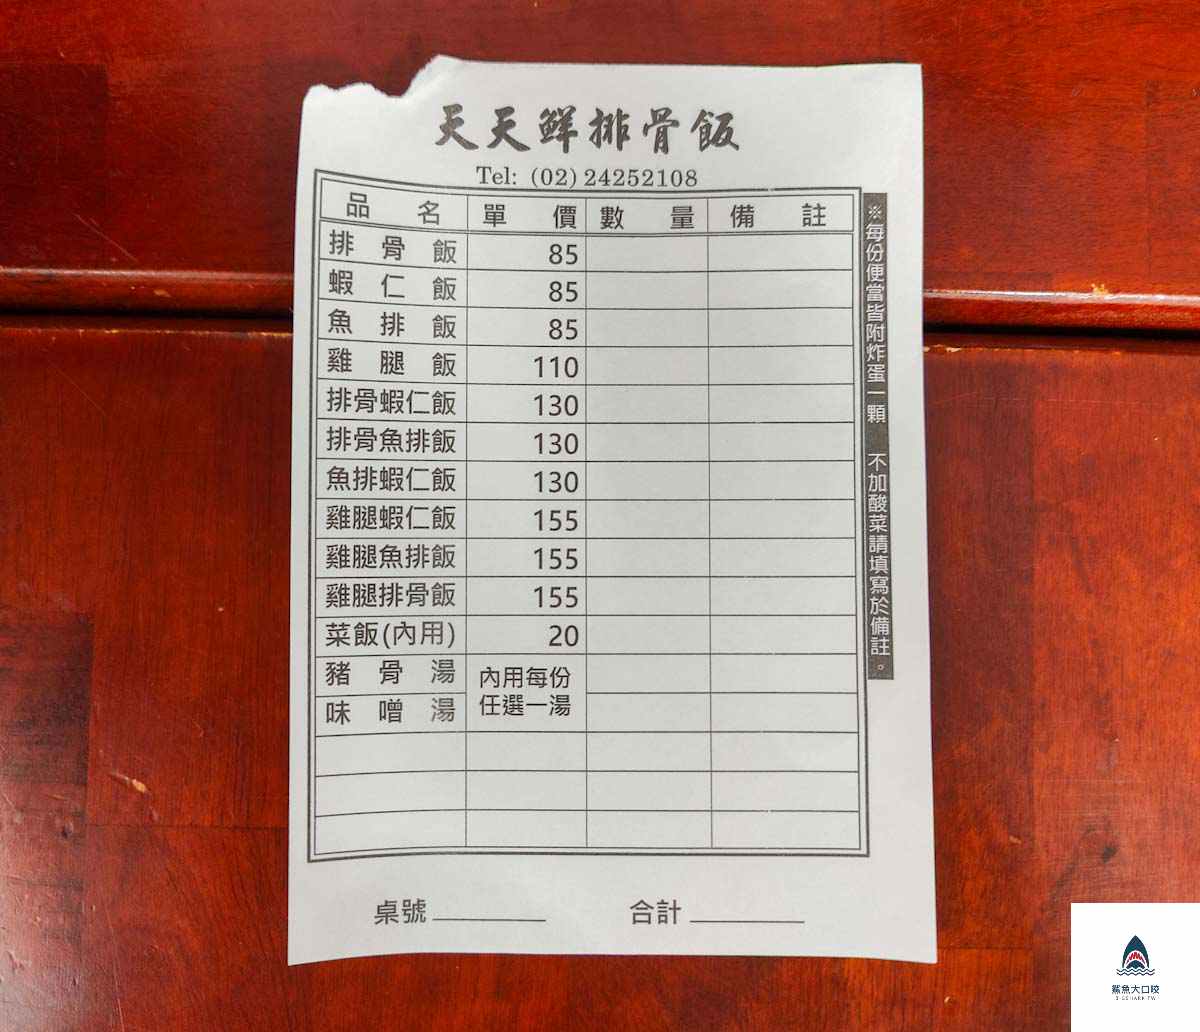 天天鮮排骨飯
Tel: (02) 24252108
品名 單價 數量 備註
排骨飯 85
蝦仁飯 85
魚排飯 85
雞腿飯 110
排骨蝦仁飯 130
排骨魚排飯 130
魚排蝦仁飯 130
雞腿蝦仁飯 155
雞腿魚排飯 155
雞腿排骨飯 155
菜飯(內用) 20
豬骨湯
味噌湯
內用每份
任選一湯
※每份便當皆附炸蛋一顆 不加酸菜請填寫於備註。
桌號 合計
鯊魚大口咬
BIGSHARK.TW